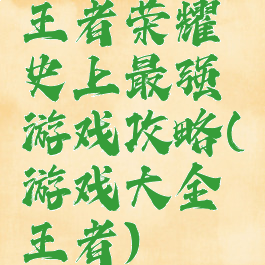 王者荣耀
史上最强
游戏攻略(
游戏大全
王者)